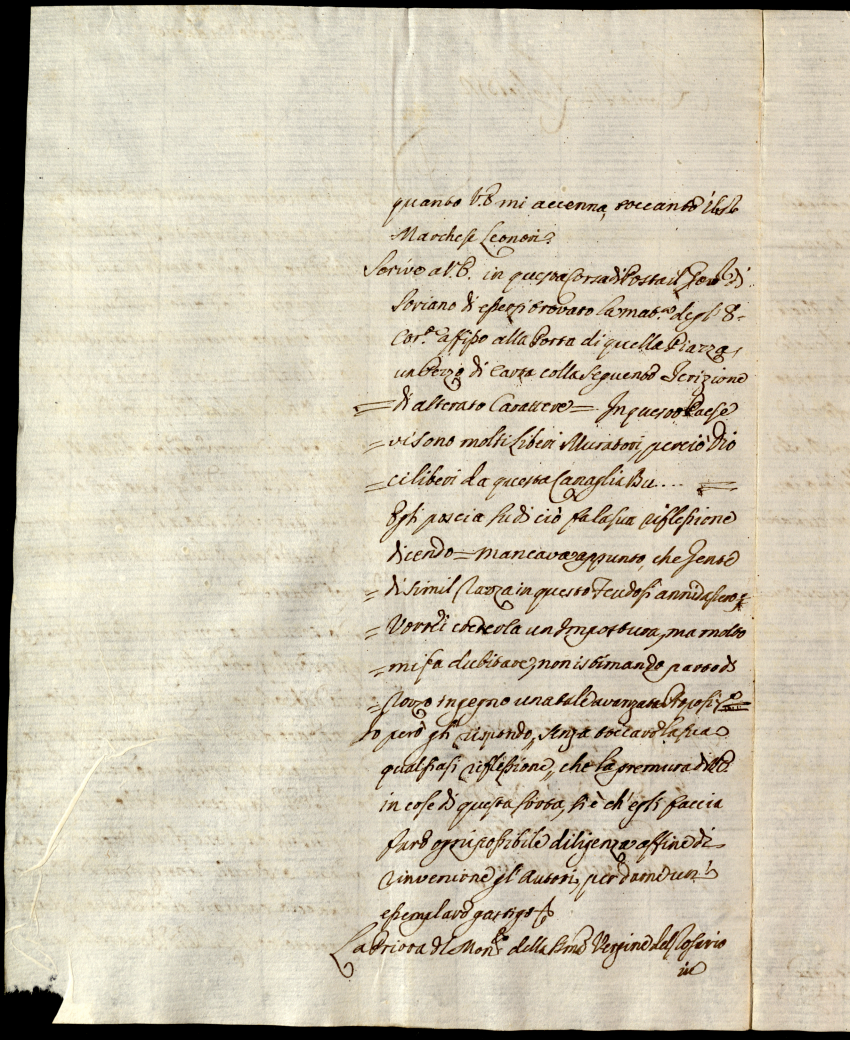 quanto V.E. mi accenna, toccante il Sig.
Marchese Leonori.
Scrive a V.E. in questa Corsa di Posta il Gov.re di
Soriano di essersi trovato la mat.na degl' 8.
Cor.te affisso alla Porta di quella Piazza
un Pezzo di Carta colla seguente Iscrizione
= di alterato Carattere = In questo Paese
= vi sono molti Liberi Muratori, perciò Dio
= ci liberi da questa Canaglia Bu.... =
Egli poscia su di ciò fa la sua riflessione
dicendo = mancava appunto, che Gente
= di simil Razza in questo Feudo si annidassero;
= Vorrei crederla un Impostura, ma molto
= mi fa dubitare, non istimando parto di
= Rozzo ingegno una tale avanzata Proposiz.ne =
Io però gli rispondo, senza toccare la sua
qualsiasi riflessione, che la premura di V.E.
in cose di questa sorta, si è ch'egli faccia
fare ogni possibile diligenza affine di
rinvenirne gl' Autori, per darne un
esemplare gastigo
La Priora del Mon.ro della B.ma Vergine del Rosario
in